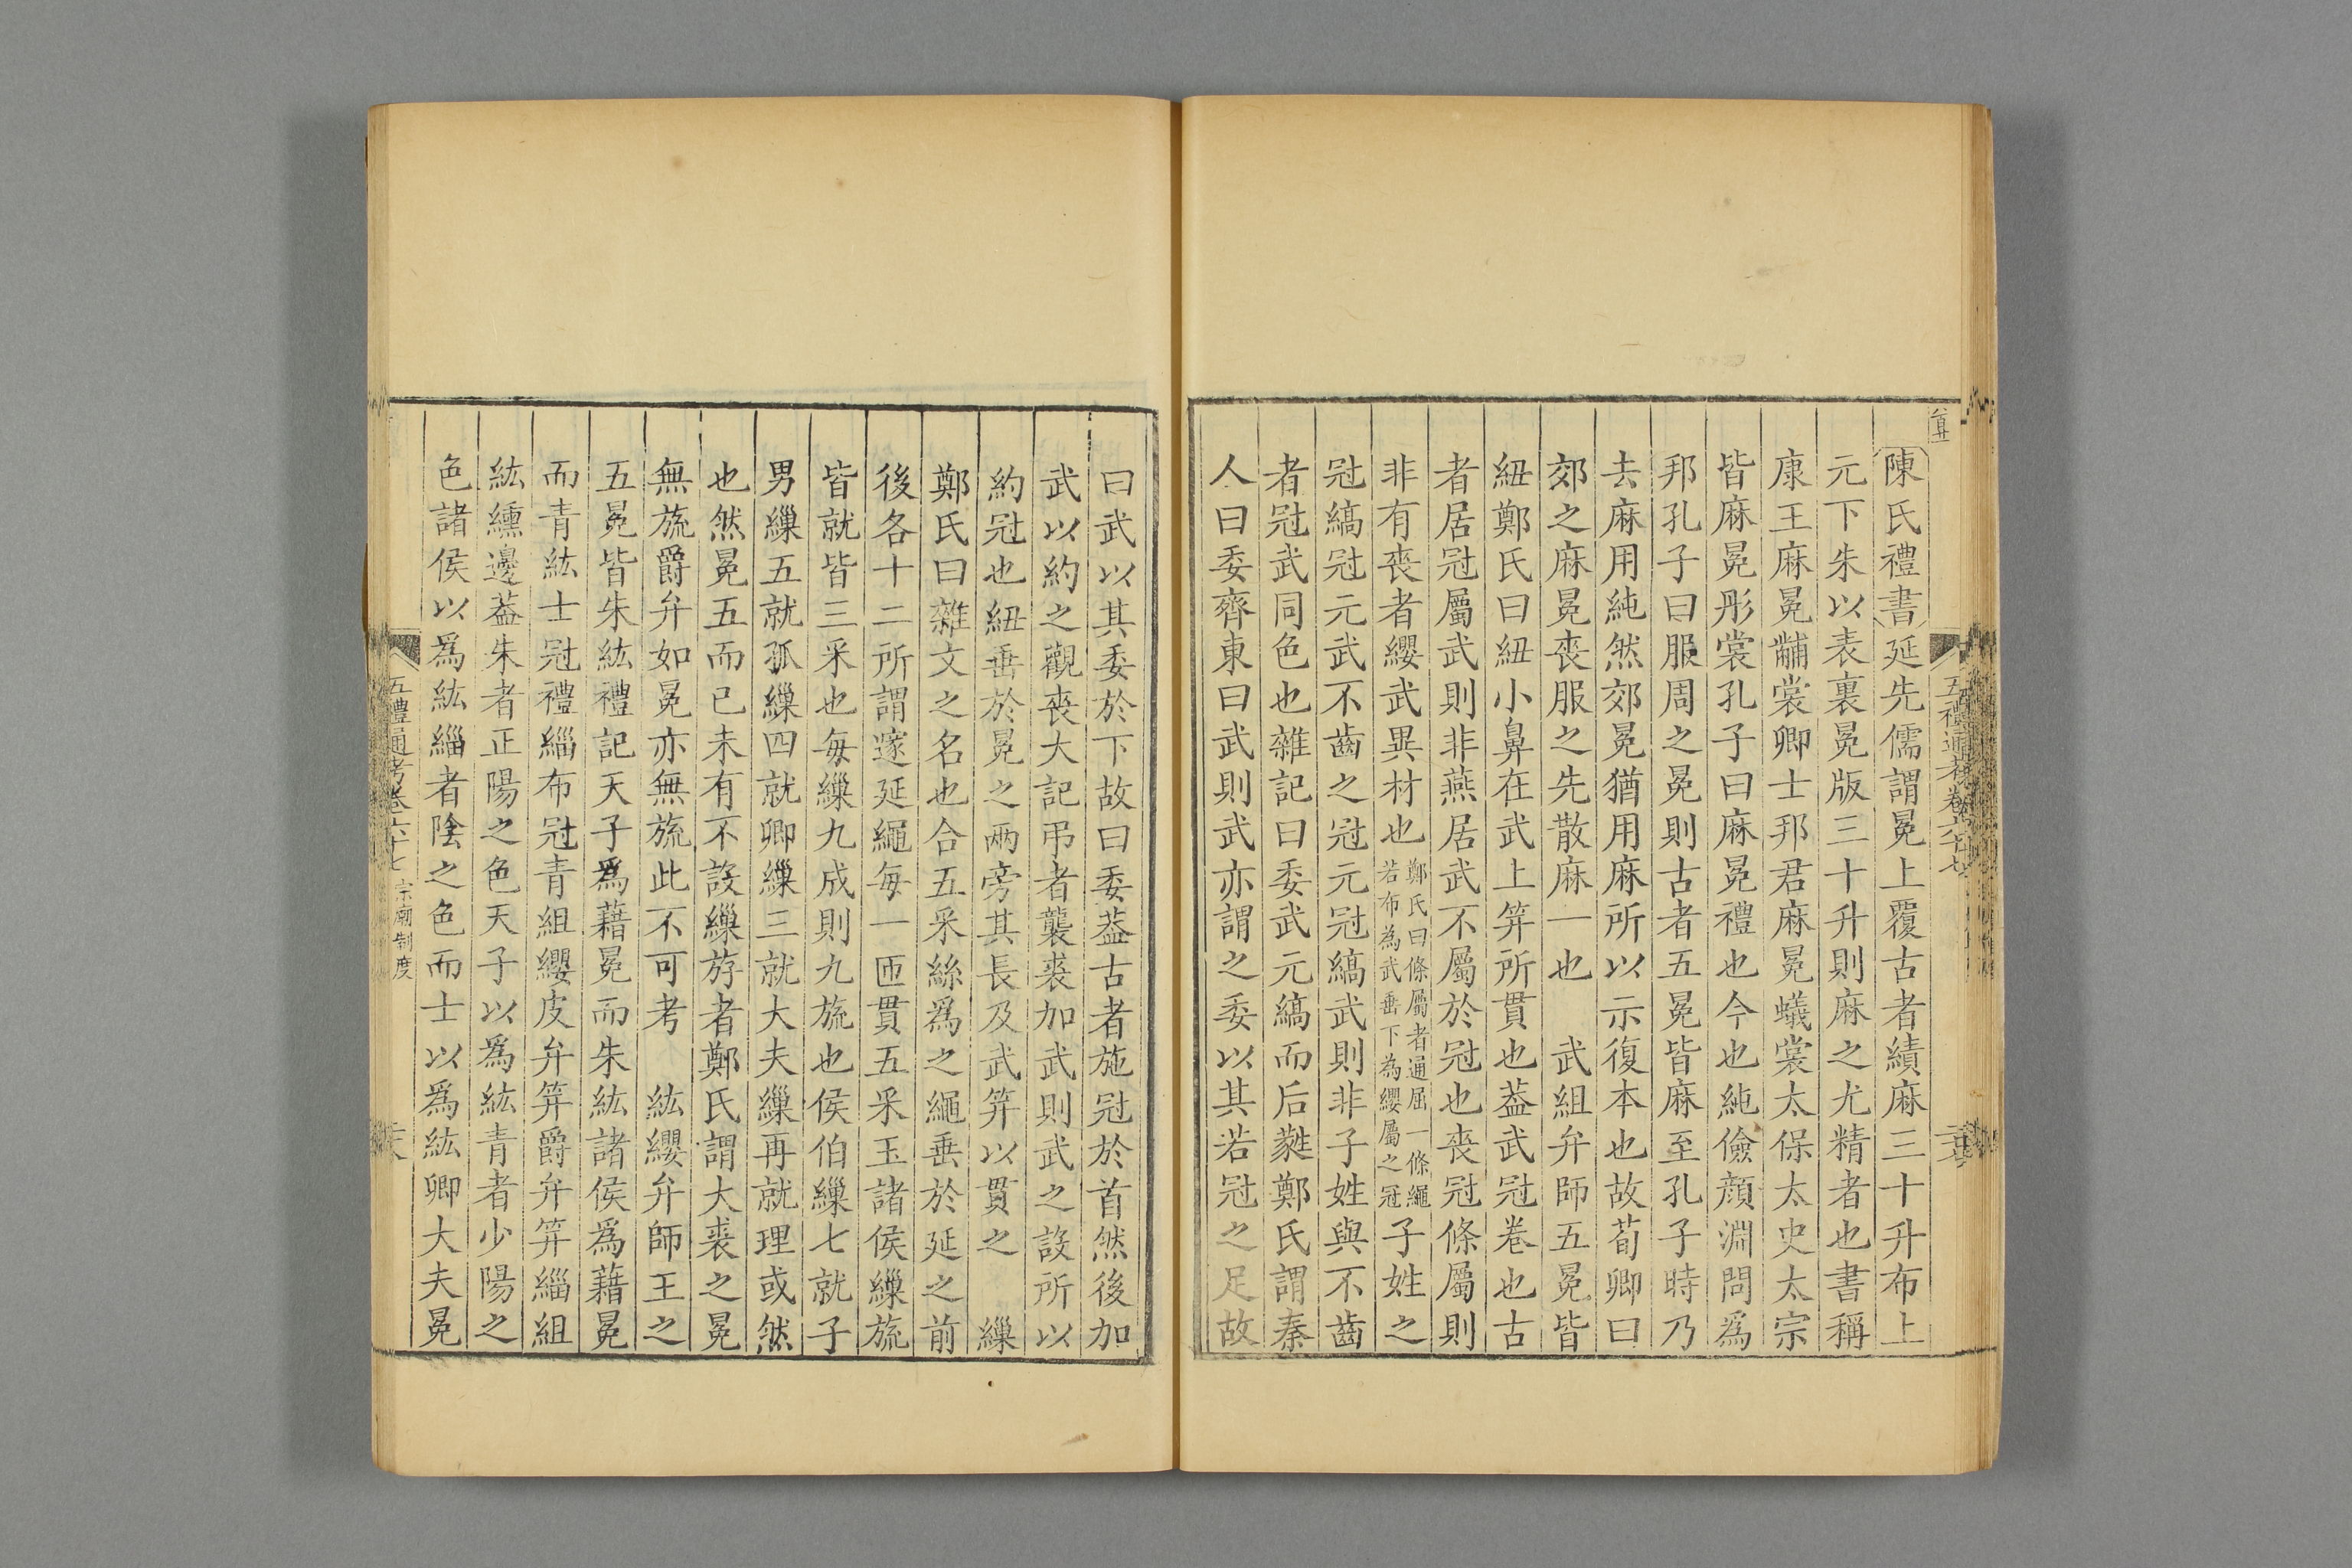 陳氏禮書延先儒謂冕上覆古者績麻三十升布上
元下朱以表裏冕版三十升則麻之尤精者也書稱
康王麻冕黼裳卿士邦君麻冕蟻裳太保太史太宗
皆麻冕彤裳孔子曰麻冕禮也今也純儉顔淵問爲
邦孔子曰服周之冕則古者五冕皆麻至孔子時乃
去麻用純然郊冕猶用麻所以示復本也故荀卿曰
郊之麻冕喪服之先散麻一也　武組弁師五冕皆
紐鄭氏曰紐小鼻在武上笄所貫也葢武冠卷也古
者居冠屬武則非燕居武不屬於冠也喪冠條屬則
非有喪者纓武異材也鄭氏曰條屬者通屈一條繩若布為武垂下為纓屬之冠子姓之
冠縞冠元武不齒之冠元冠縞武則非子姓與不齒
者冠武同色也雜記曰委武元縞而后蕤鄭氏謂秦
人曰委齊東曰武則武亦謂之委以其若冠之足故
曰武以其委於下故曰委葢古者施冠於首然後加
武以約之觀喪大記弔者襲裘加武則武之設所以
約冠也紐垂於冕之兩旁其長及武笄以貫之　繅
鄭氏曰雜文之名也合五采絲爲之繩垂於延之前
後各十二所謂邃延繩每一匝貫五采玉諸侯繅旒
皆就皆三采也每繅九成則九旒也侯伯繅七就子
男繅五就孤繅四就卿繅三就大夫繅再就理或然
也然冕五而已未有不設繅斿者鄭氏謂大裘之冕
無旒爵弁如冕亦無旒此不可考　紘纓弁師王之
五冕皆朱紘禮記天子爲藉冕而朱紘諸侯爲藉冕
而青紘士冠禮緇布冠青組纓皮弁笄爵弁笄緇組
紘纁邊葢朱者正陽之色天子以爲紘青者少陽之
色諸侯以爲紘緇者陰之色而士以爲紘卿大夫冕
五禮通考卷六十七 宗廟制度